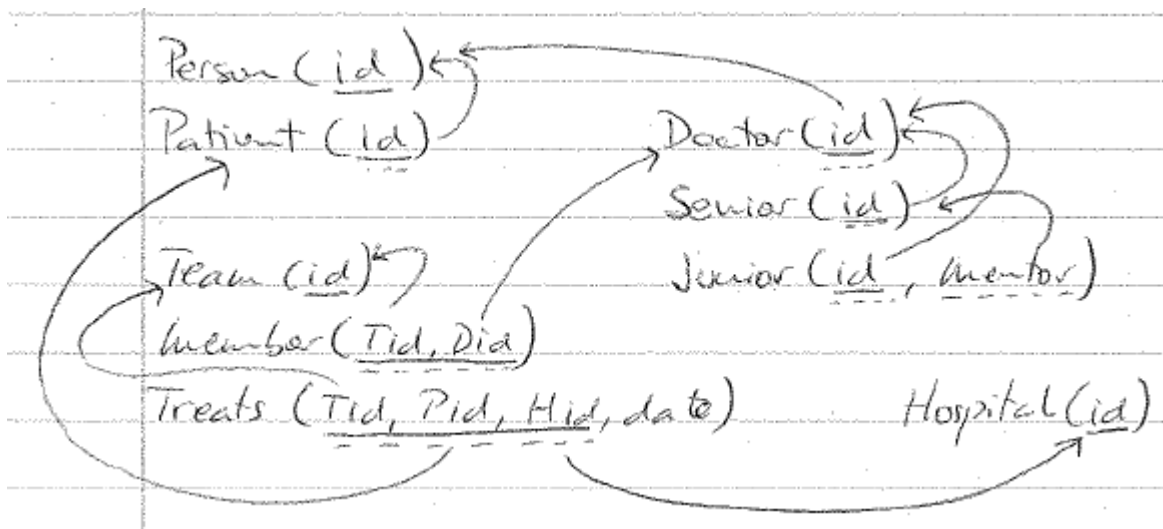 Person (id)
Patient (id)
Doctor (id)
Senior (id)
Team (id)
Junior (id, mentor)
member (Tid, Did)
Treats (Tid, Pid, Hid, date)
Hospital (id)